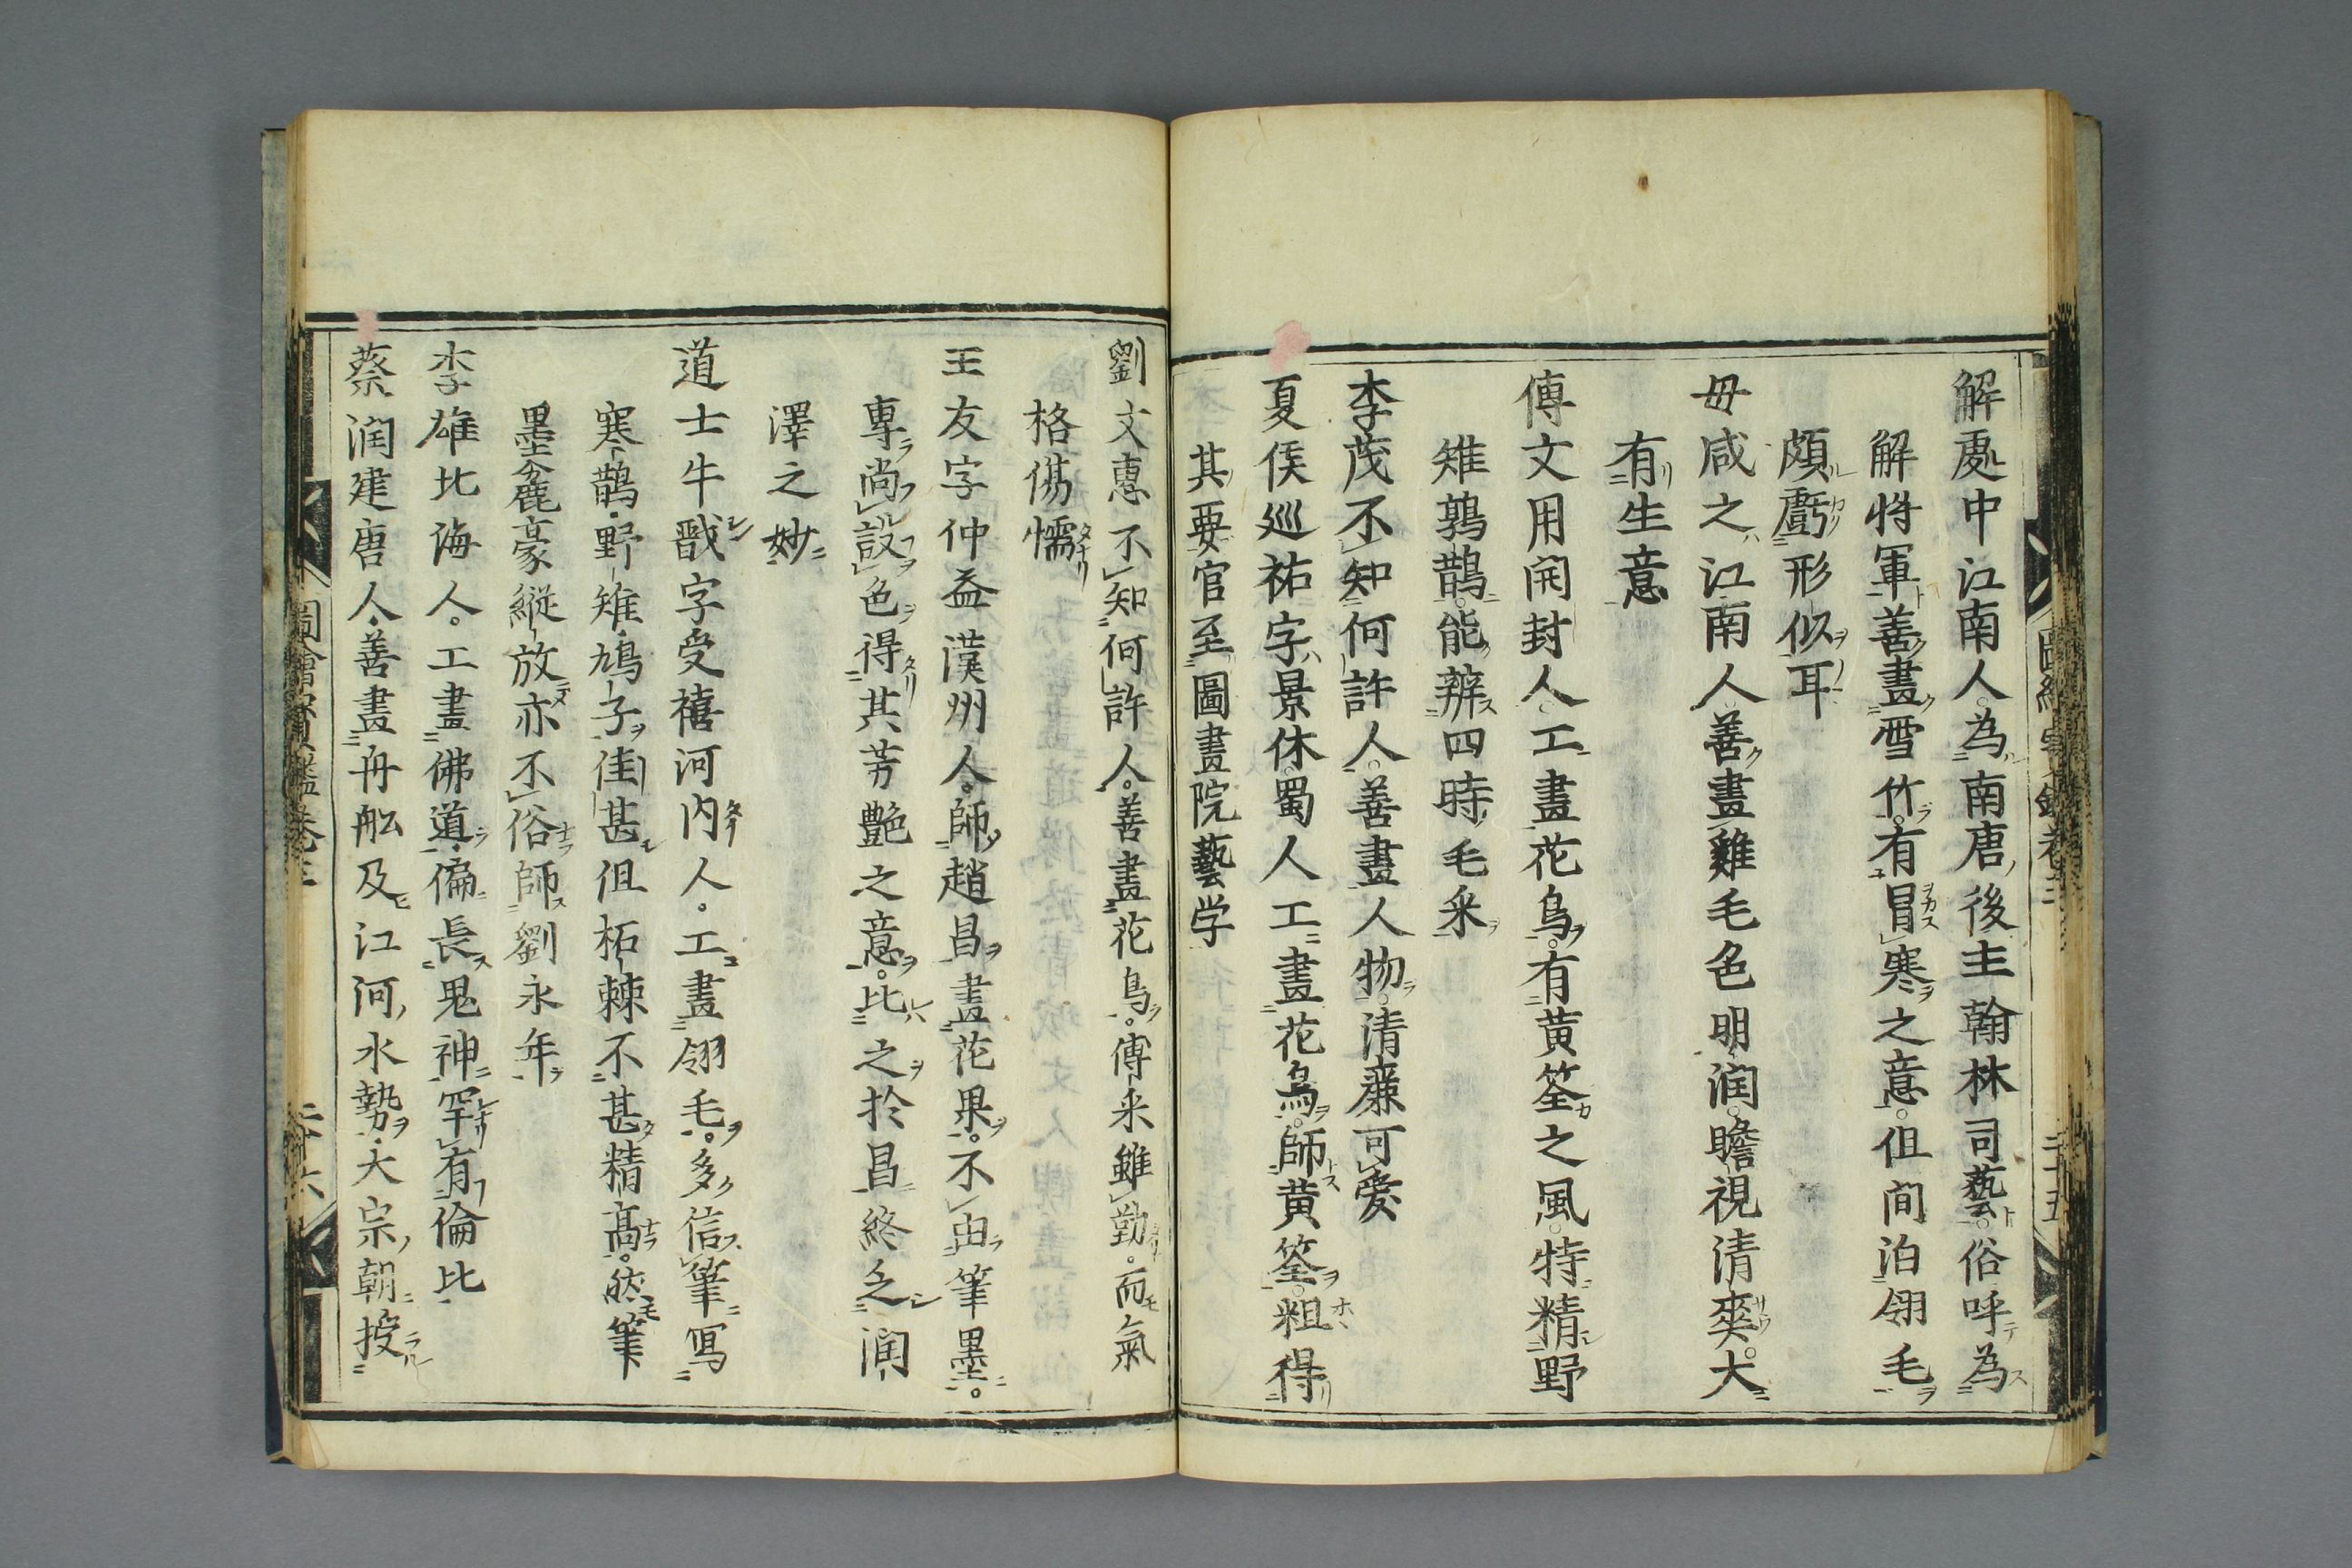 解處中江南人為南唐後主翰林司藝俗呼為
解将軍善畫雪竹有冒寒之意但間泊翎毛
頗虧形似耳
毋咸之江南人善畫雞毛色明润瞻視清爽大
有生意
傅文用開封人工畫花鳥有黄筌之風特精野
雉鶉鵲能辨四時毛采
李茂不知何許人善畫人物清廉可愛
夏侯延祐字景休蜀人工畫花鳥師黄筌粗得
其要官至圖畫院藝学
劉文惠不知何許人善畫花鳥傅采雖勤而氣
格傷懦
王友字仲益漢州人師趙昌畫花果不由筆墨
專尚設色得其芳艷之意比之於昌終乏润
澤之妙
道士牛戩字受禧河内人工畫翎毛多信筆寫
寒鵲野雉鳩子佳甚但柘棘不甚精髙然筆
墨麁豪縦放亦不俗師劉永年
李雄北海人工畫佛道偏長鬼神罕有倫比
蔡润建唐人善畫舟舩及江河水勢大宗朝授
圖繪寳鑑卷三
二十六